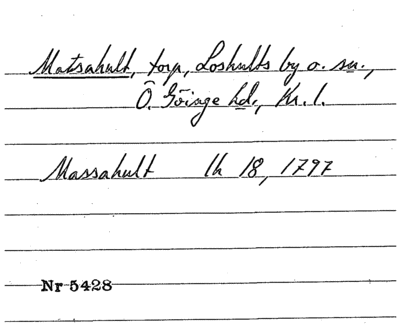 Matsahult, torp, Loshults by o. sn.,
Ö. Göinge hd., Kr. l.
Massahult lh 18, 1797
Nr 5428